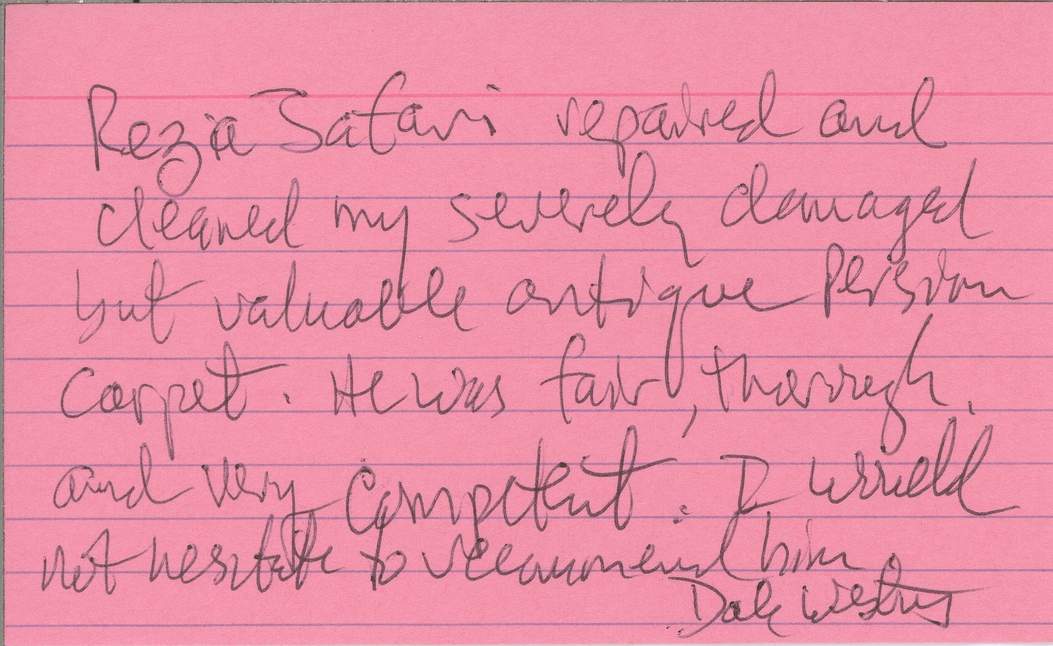 Rezia Safavi repaired and
cleaned my severely damaged
but valuable antique Persian
carpet. He was fair, thorough,
and very competent. I would
not hesitate to recommend him.
Dale